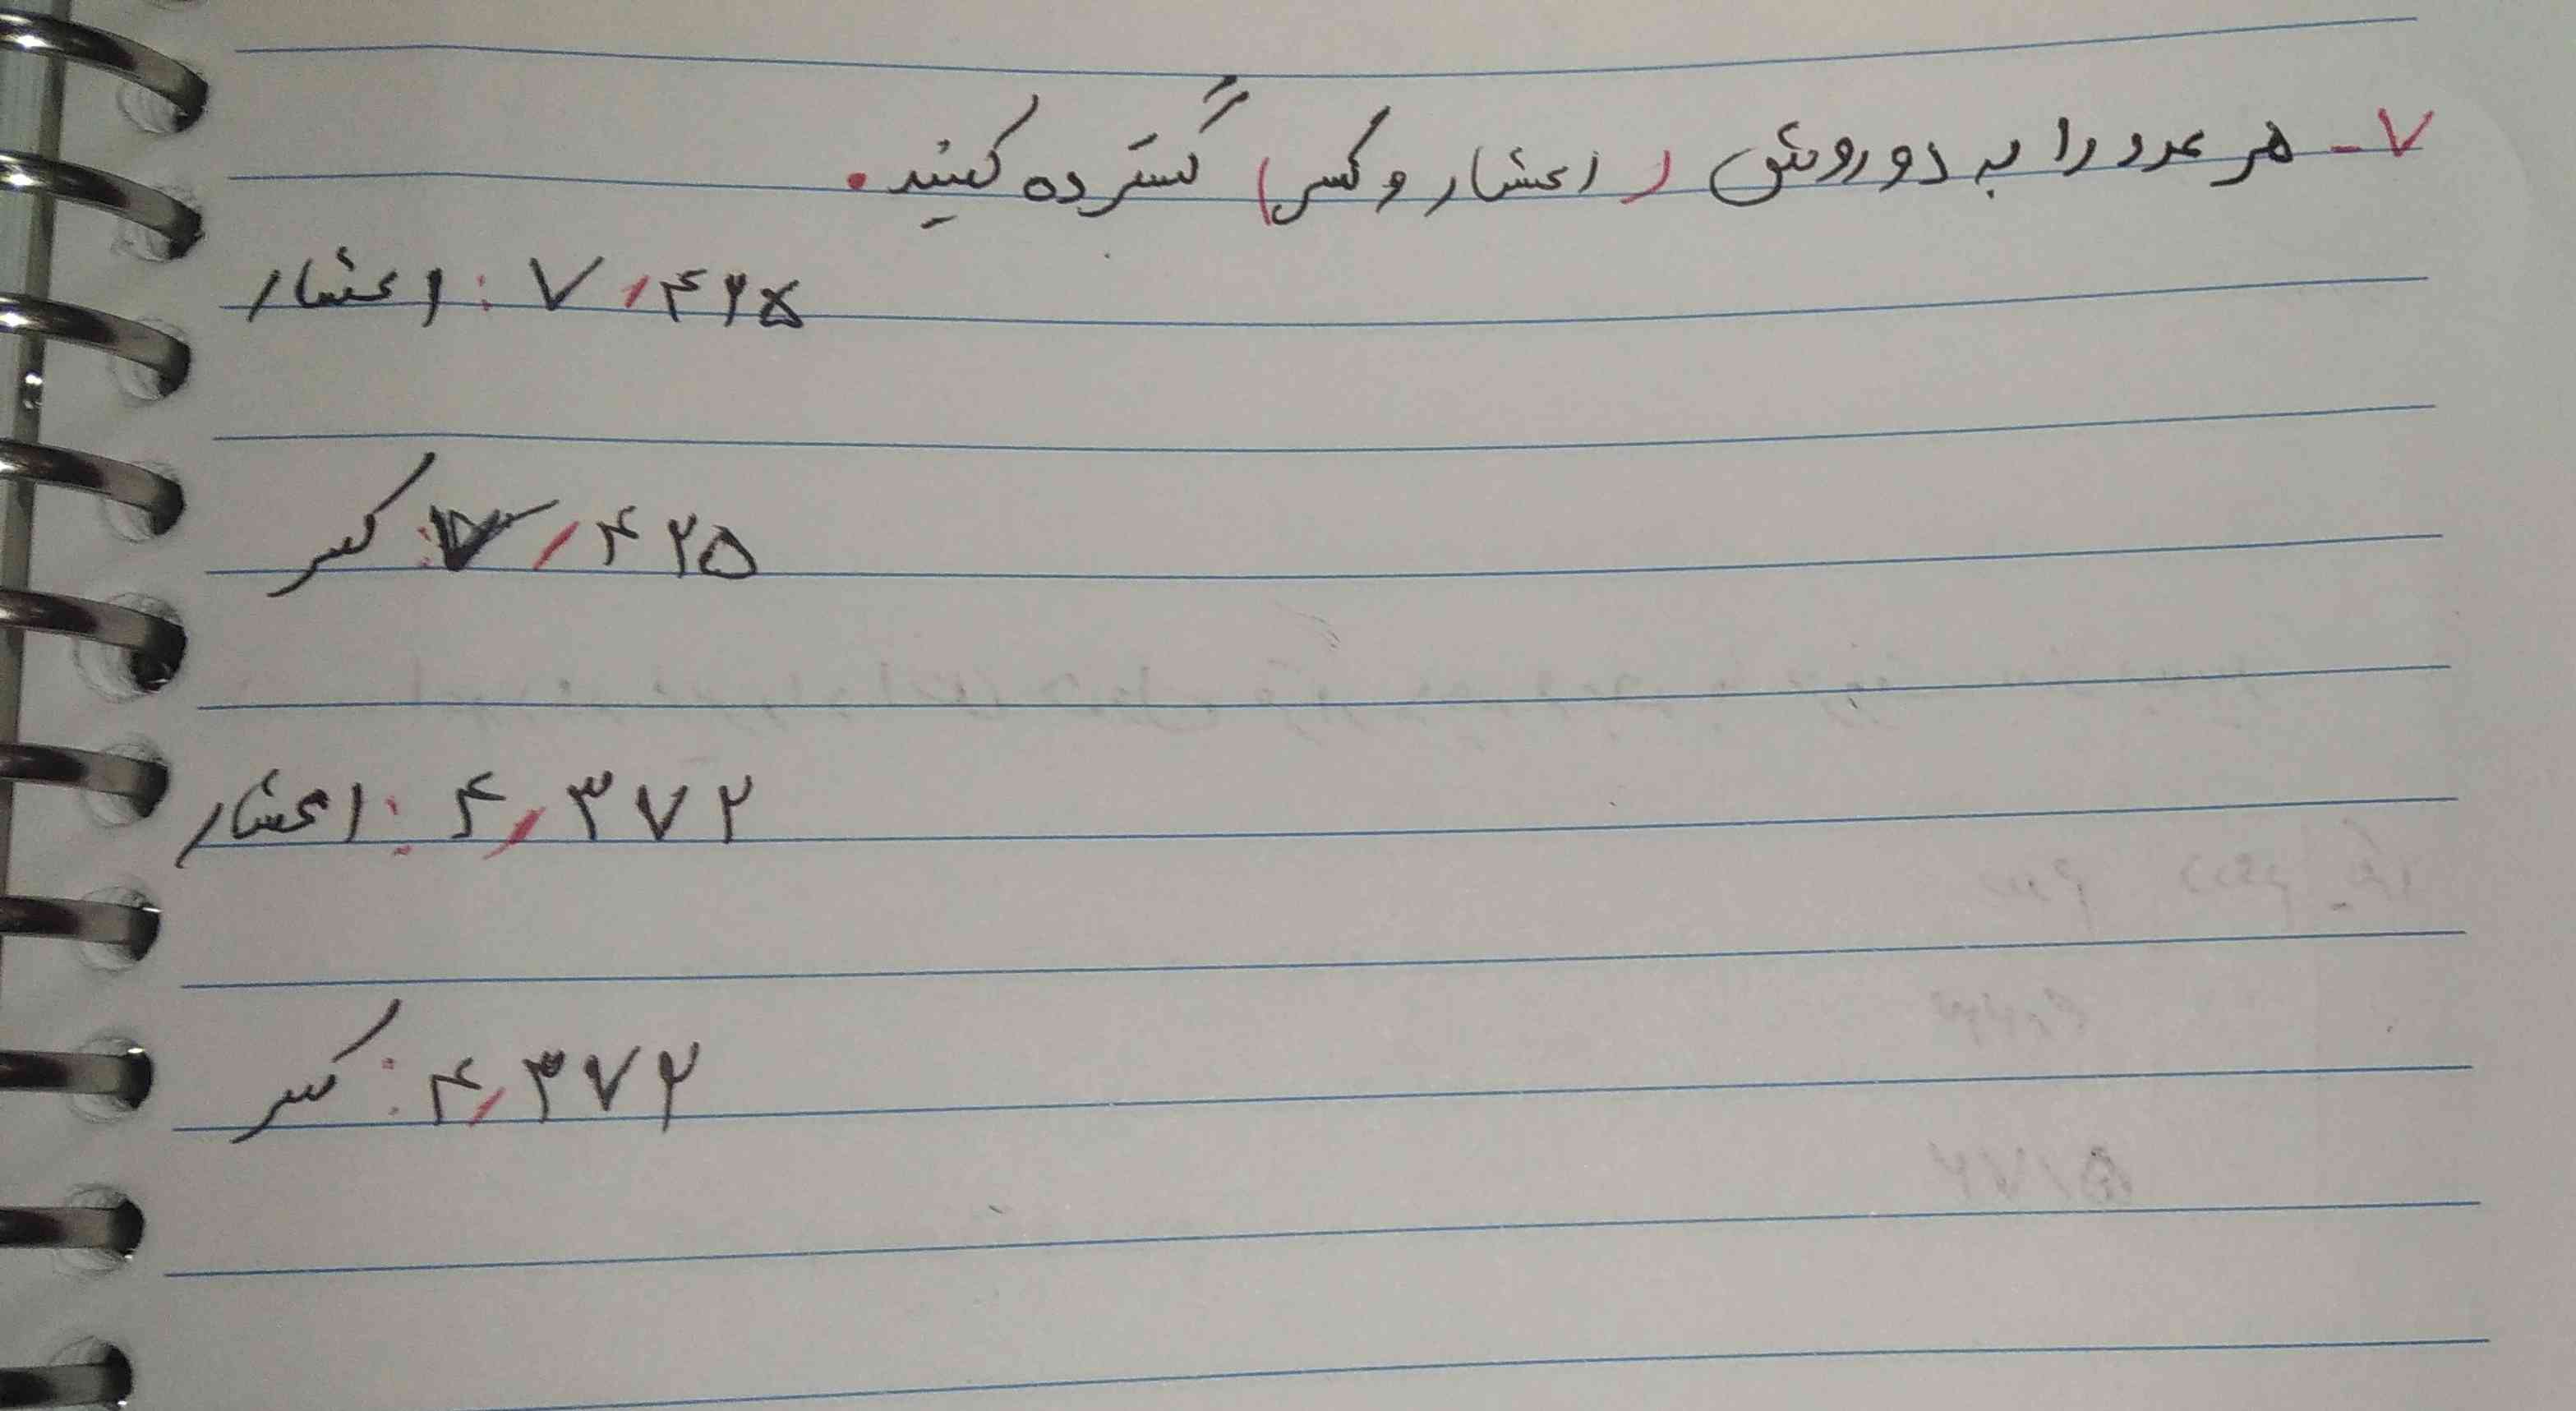 ۷- هر عدد را به دو روش ( اعشار و کسر) گسترده کنید.
اعشار : ۷٫۴۲۵
کسر : ۷٫۴۲۵
اعشار : ۴٫۳۷۲
کسر : ۴٫۳۷۲